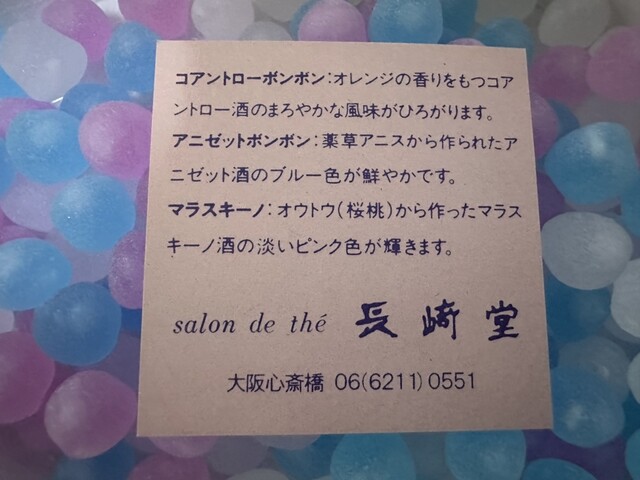 コアントローボンボン:オレンジの香りをもつコア
ントロー酒のまろやかな風味がひろがります。
アニゼットボンボン:薬草アニスから作られたア
ニゼット酒のブルー色が鮮やかです。
マラスキーノ:オウトウ(桜桃)から作ったマラス
キーノ酒の淡いピンク色が輝きます。
salon de thé 長﨑堂
大阪心斎橋 06(6211)0551